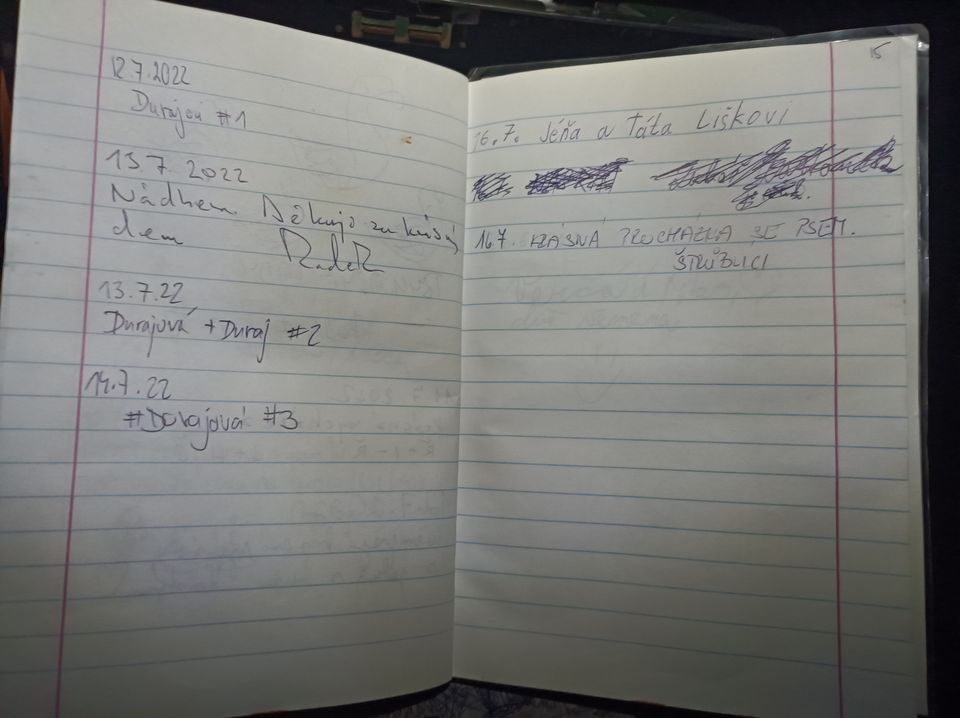 12.7.2022
Durajovi #1
13.7.2022
Nádhera Děkuji za krásný
den
Radek
13.7.22
Durajová + Duraj #2
14.7.22
#Durajová #3
15
16.7. Jéňa a Táta Liškovi
16.7. KRÁSNÁ PROCHÁZKA SE PSEM.
ŠTRŮBLICI